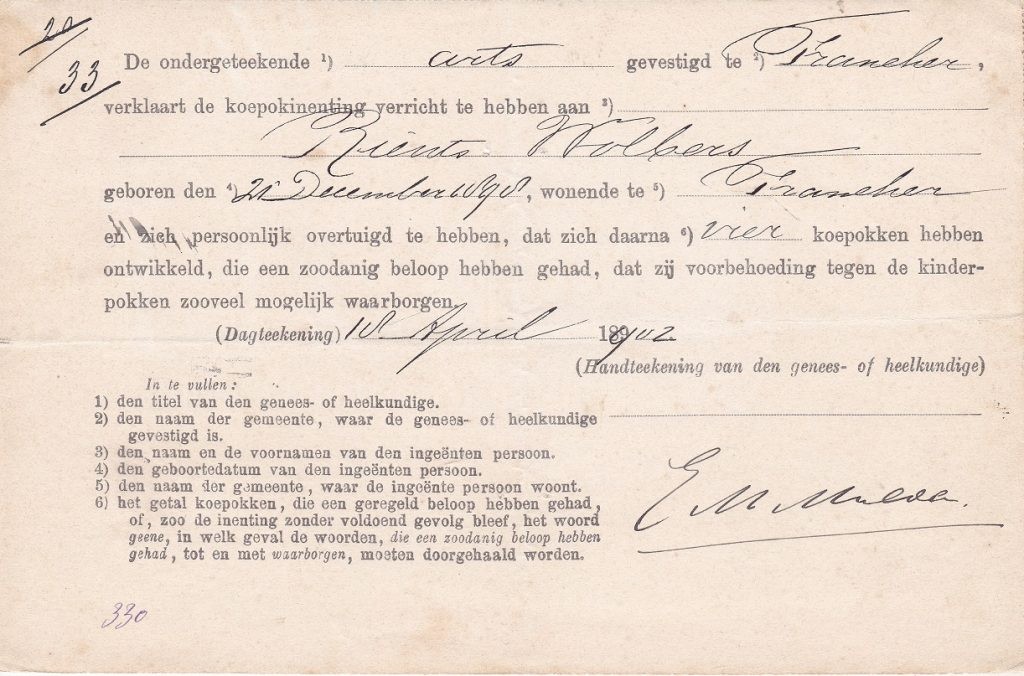 20/33
De ondergeteekende ¹) arts gevestigd te ²) Franeker,
verklaart de koepokinenting verricht te hebben aan ³)
Rients Wolbers
geboren den ⁴) 21 December 1898, wonende te ⁵) Franeker
en zich persoonlijk overtuigd te hebben, dat zich daarna ⁶) vier koepokken hebben
ontwikkeld, die een zoodanig beloop hebben gehad, dat zij voorbehoeding tegen de kinder-
pokken zooveel mogelijk waarborgen.
(Dagteekening) 18 April 1902
(Handteekening van den genees- of heelkundige)
In te vullen:
1) den titel van den genees- of heelkundige.
2) den naam der gemeente, waar de genees- of heelkundige
gevestigd is.
3) den naam en de voornamen van den ingeënten persoon.
4) den geboortedatum van den ingeënten persoon.
5) den naam der gemeente, waar de ingeënte persoon woont.
6) het getal koepokken, die een geregeld beloop hebben gehad,
of, zoo de inenting zonder voldoend gevolg bleef, het woord
geene, in welk geval de woorden, die een zoodanig beloop hebben
gehad, tot en met waarborgen, moeten doorgehaald worden.
E M Mulder.
330